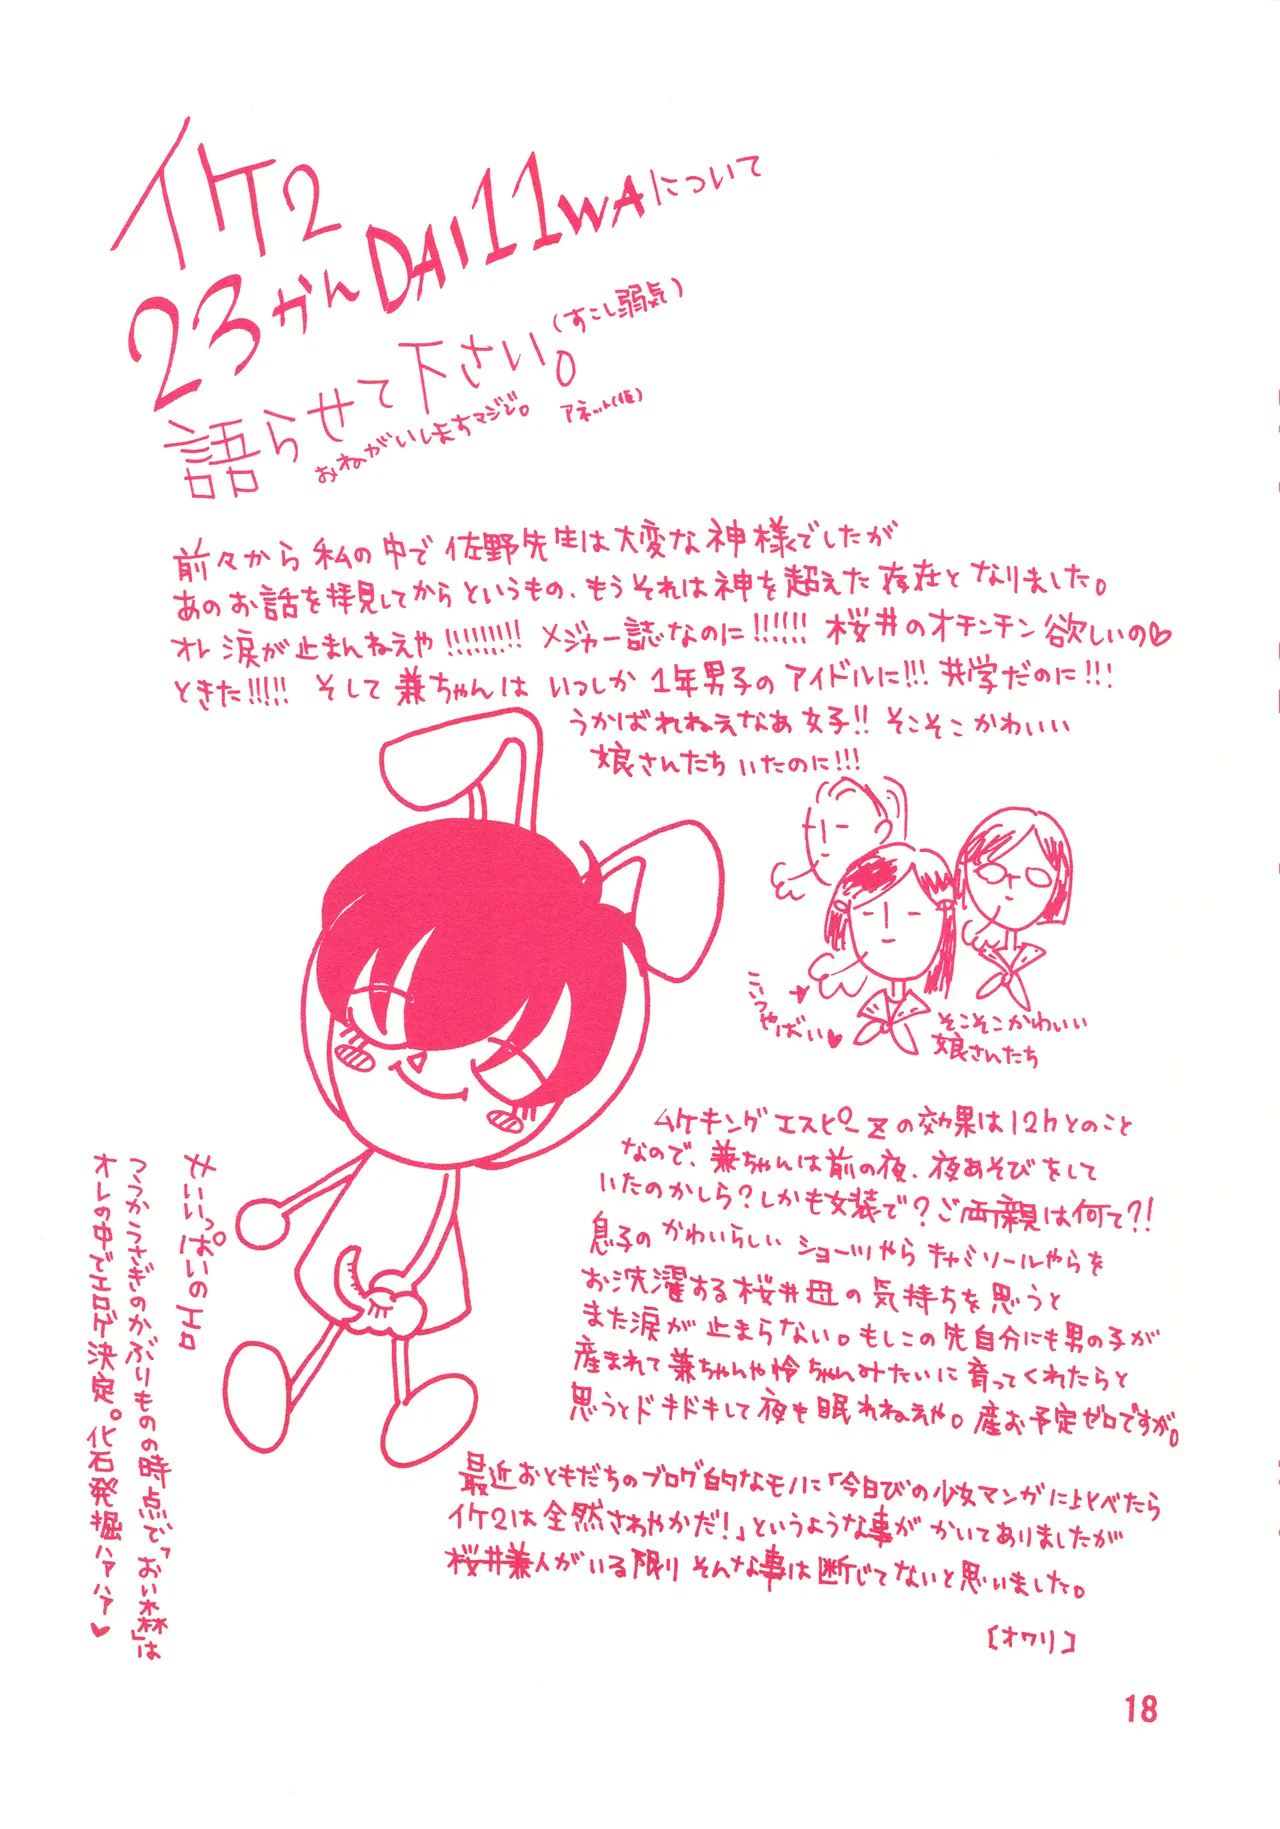 イケ2
23かんDAI11WAについて
語らせて下さい。(すこし弱気)
おねがいしますマジで。
アネット(仮)
前々から私の中で佐野先生は大変な神様でしたが
あのお話を拝見してからというもの、もうそれは神を超えた存在となりました。
オレ涙が止まんねえや!!!!!!!!! メジャー誌なのに!!!!!! 桜井のオチンチン欲しいの♡
ときた!!!!! そして兼ちゃんは いつしか 1年男子のアイドルに!!! 共学だのに!!!
うかばれねえなあ女子!! そこそこかわいい
娘さんたちいたのに!!!
こいつやばい♥
そこそこかわいい
娘さんたち
ムケキングエスピーZの効果は12hとのこと
なので、兼ちゃんは前の夜、夜あそびをして
いたのかしら?しかも女装で?ご両親は何て?!
息子のかわいらしい ショーツやら キャミソールやらを
お洗濯する桜井母の気持ちを思うと
また涙が止まらない。もしこの先自分にも男の子が
産まれて兼ちゃんや怜ちゃんみたいに育ってくれたらと
思うとドキドキして夜も眠れねえや。産む予定ゼロですが。
最近おともだちのブログ的なモノに「今日びの少女マンガに比べたら
イケ2は全然さわやかだ!」というような事がかいてありましたが
桜井兼人がいる限りそんな事は断じてないと思いました。
[オワリ]
せいいっぱいのエロ
つうかうさぎのかぶりものの時点で「おい森」は
オレの中でエロゲ決定。化石発掘ハァハァ♥
18